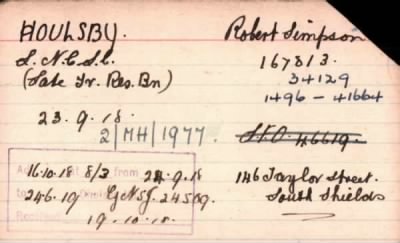 HOULSBY. Robert Simpson
L.N.C.S.C. 167813.
(Late Tr. Res. Bn) 34129
1496 – 41664
23.9.18.
2/MH/1977. S.R.O. 46619.
16.10.18 8/3 from 24.9.18 146 Taylor Street.
246.19 G.N.S.J. 24509. South Shields
19.10.18.